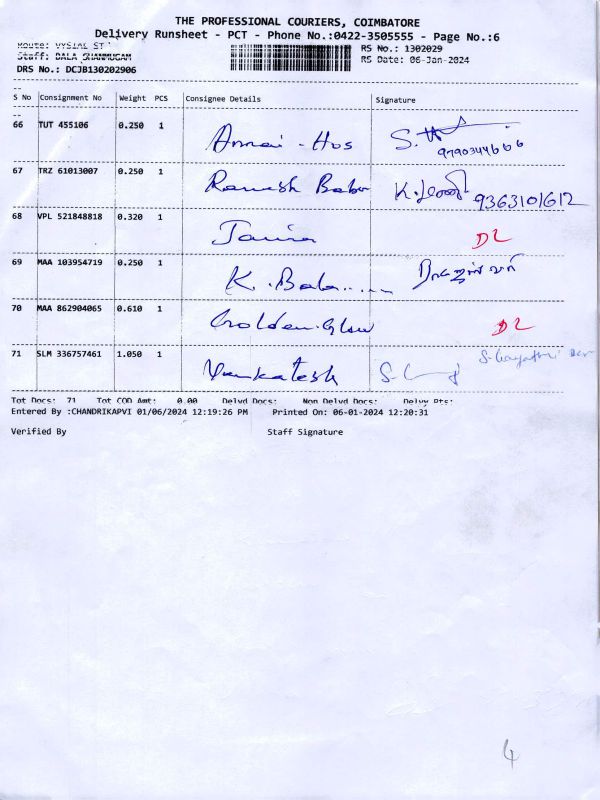 THE PROFESSIONAL COURIERS, COIMBATORE
Delivery Runsheet - PCT - Phone No.:0422-3505555 - Page No.:6
Route: VYSIAL ST
RS No.: 1302029
Staff: BALA SHANMUGAM
RS Date: 06-Jan-2024
DRS No.: DCJB130202906
S No Consignment No Weight PCS Consignee Details Signature
66 TUT 455106 0.250 1 Annai - Hos
9790344666
67 TRZ 61013007 0.250 1 Ramesh Babu 9363101612
68 VPL 521848818 0.320 1 D2
69 MAA 103954719 0.250 1 K. Bala.....
70 MAA 862904065 0.610 1 Golden. Glow D2
71 SLM 336757461 1.050 1 Venkatesh
Tot Docs: 71 Tot COD Amt: 0.00 Delvd Docs: Non Delvd Docs: Delvy Pts:
Entered By :CHANDRIKAPVI 01/06/2024 12:19:26 PM Printed On: 06-01-2024 12:20:31
Verified By Staff Signature
4